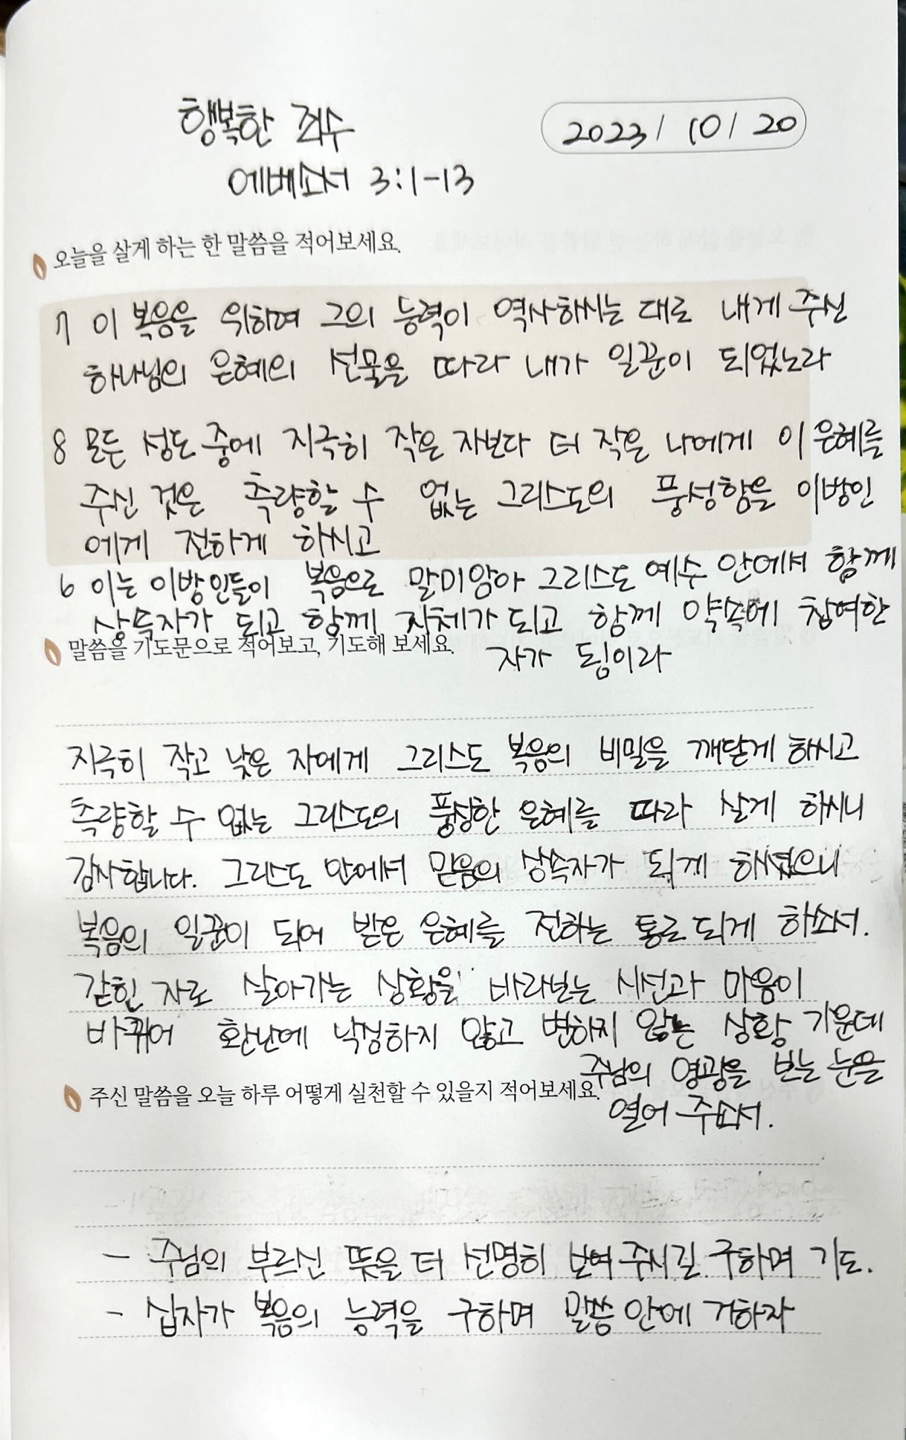 행복한 죄수
2023 / 10 / 20
에베소서 3:1-13
오늘을 살게 하는 한 말씀을 적어보세요.
7 이 복음을 위하여 그의 능력이 역사하시는 대로 내게 주신
하나님의 은혜의 선물을 따라 내가 일꾼이 되었노라
8 모든 성도 중에 지극히 작은 자보다 더 작은 나에게 이 은혜를
주신 것은 측량할 수 없는 그리스도의 풍성함을 이방인
에게 전하게 하시고
6 이는 이방인들이 복음으로 말미암아 그리스도 예수 안에서 함께
상속자가 되고 함께 지체가 되고 함께 약속에 참여한
자가 됨이라
말씀을 기도문으로 적어보고, 기도해 보세요.
지극히 작고 낮은 자에게 그리스도 복음의 비밀을 깨닫게 하시고
측량할 수 없는 그리스도의 풍성한 은혜를 따라 살게 하시니
감사합니다. 그리스도 안에서 믿음의 상속자가 되게 하셨으니
복음의 일꾼이 되어 받은 은혜를 전하는 통로 되게 하소서.
갇힌 자로 살아가는 상황을 바라보는 시선과 마음이
바뀌어 환난에 낙심하지 않고 변하지 않는 상황 가운데
주님의 영광을 보는 눈을
열어 주소서.
주신 말씀을 오늘 하루 어떻게 실천할 수 있을지 적어보세요.
- 주님의 부르신 뜻을 더 선명히 보여 주시길 구하며 기도.
- 십자가 복음의 능력을 구하며 말씀 안에 거하자